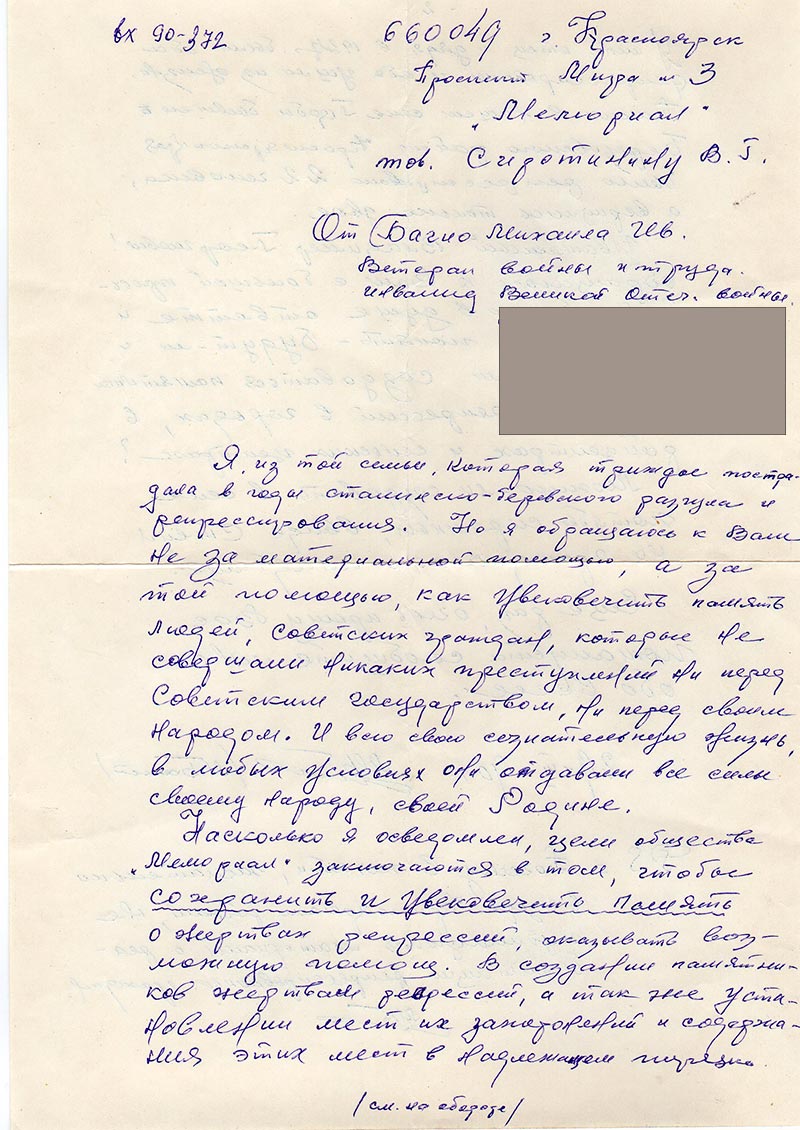 вх 90-372
660049 г Красноярск
Проспект Мира № 3
"Мемориал"
тов. Сиротинину В. Г.
От Багно Михаила Ив.
Ветеран войны и труда.
инвалид Великой Отеч. войны.
Я, из той семьи, которая трижды постра-
дала в годы сталинско-беревского разгула и
репрессирования. Но я обращаюсь к Вам
не за материальной помощью, а за
той помощью, как увековечить память
людей, советских граждан, которые не
совершали никаких преступлений ни перед
Советским государством, ни перед своим
народом. И всю свою сознательную жизнь,
в любых условиях они отдавали все силы
своему народу, своей Родине.
Насколько я осведомлен, цели общества
"Мемориал" заключаются в том, чтобы
сохранить и увековечить память
о жертвах репрессий, оказывать воз-
можную помощь. В создании памятни-
ков жертвам репрессий, а так же уста-
новлении мест их захоронений и содержа-
ния этих мест в надлежащем порядке.
/см. на обороте/